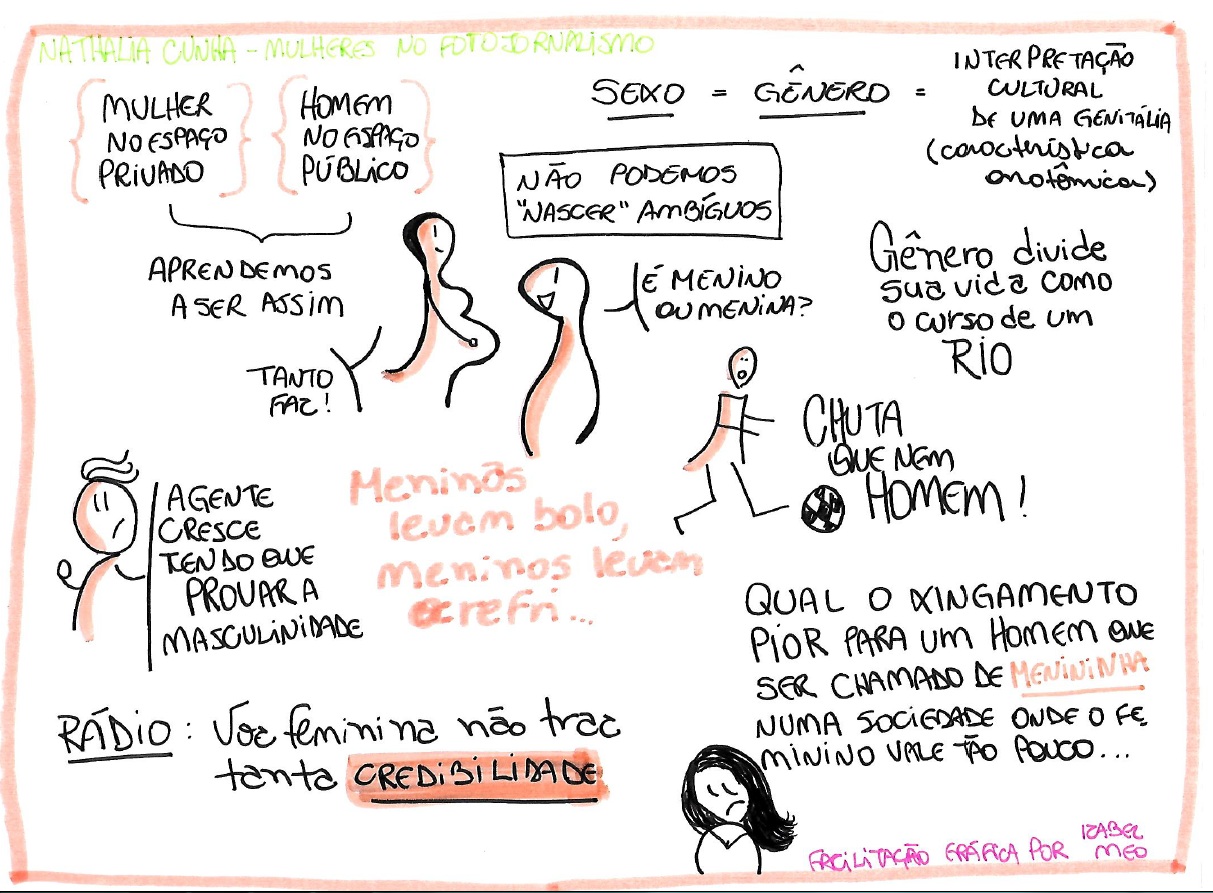 NATHALIA CUNHA - MULHERES NO FOTOJORNALISMO
MULHER
NO ESPAÇO
PRIVADO
HOMEM
NO ESPAÇO
PÚBLICO
APRENDEMOS
A SER ASSIM
SEXO = GÊNERO =
INTERPRETAÇÃO
CULTURAL
DE UMA GENITÁLIA
(característica
anatômica)
NÃO PODEMOS
"NASCER" AMBÍGUOS
É MENINO
OU MENINA?
TANTO
FAZ!
Gênero divide
sua vida como
o curso de um
RIO
CHUTA
QUE NEM
HOMEM!
AGENTE
CRESCE
TENDO QUE
PROVAR A
MASCULINIDADE
Meninas
levam bolo,
meninos levam
o refri...
QUAL O XINGAMENTO
PIOR PARA UM HOMEM QUE
SER CHAMADO DE MENININHA
NUMA SOCIEDADE ONDE O FE
MININO VALE TÃO POUCO...
RÁDIO: Voz feminina não traz
tanta CREDIBILIDADE
FACILITAÇÃO GRÁFICA POR IZABEL
MEO